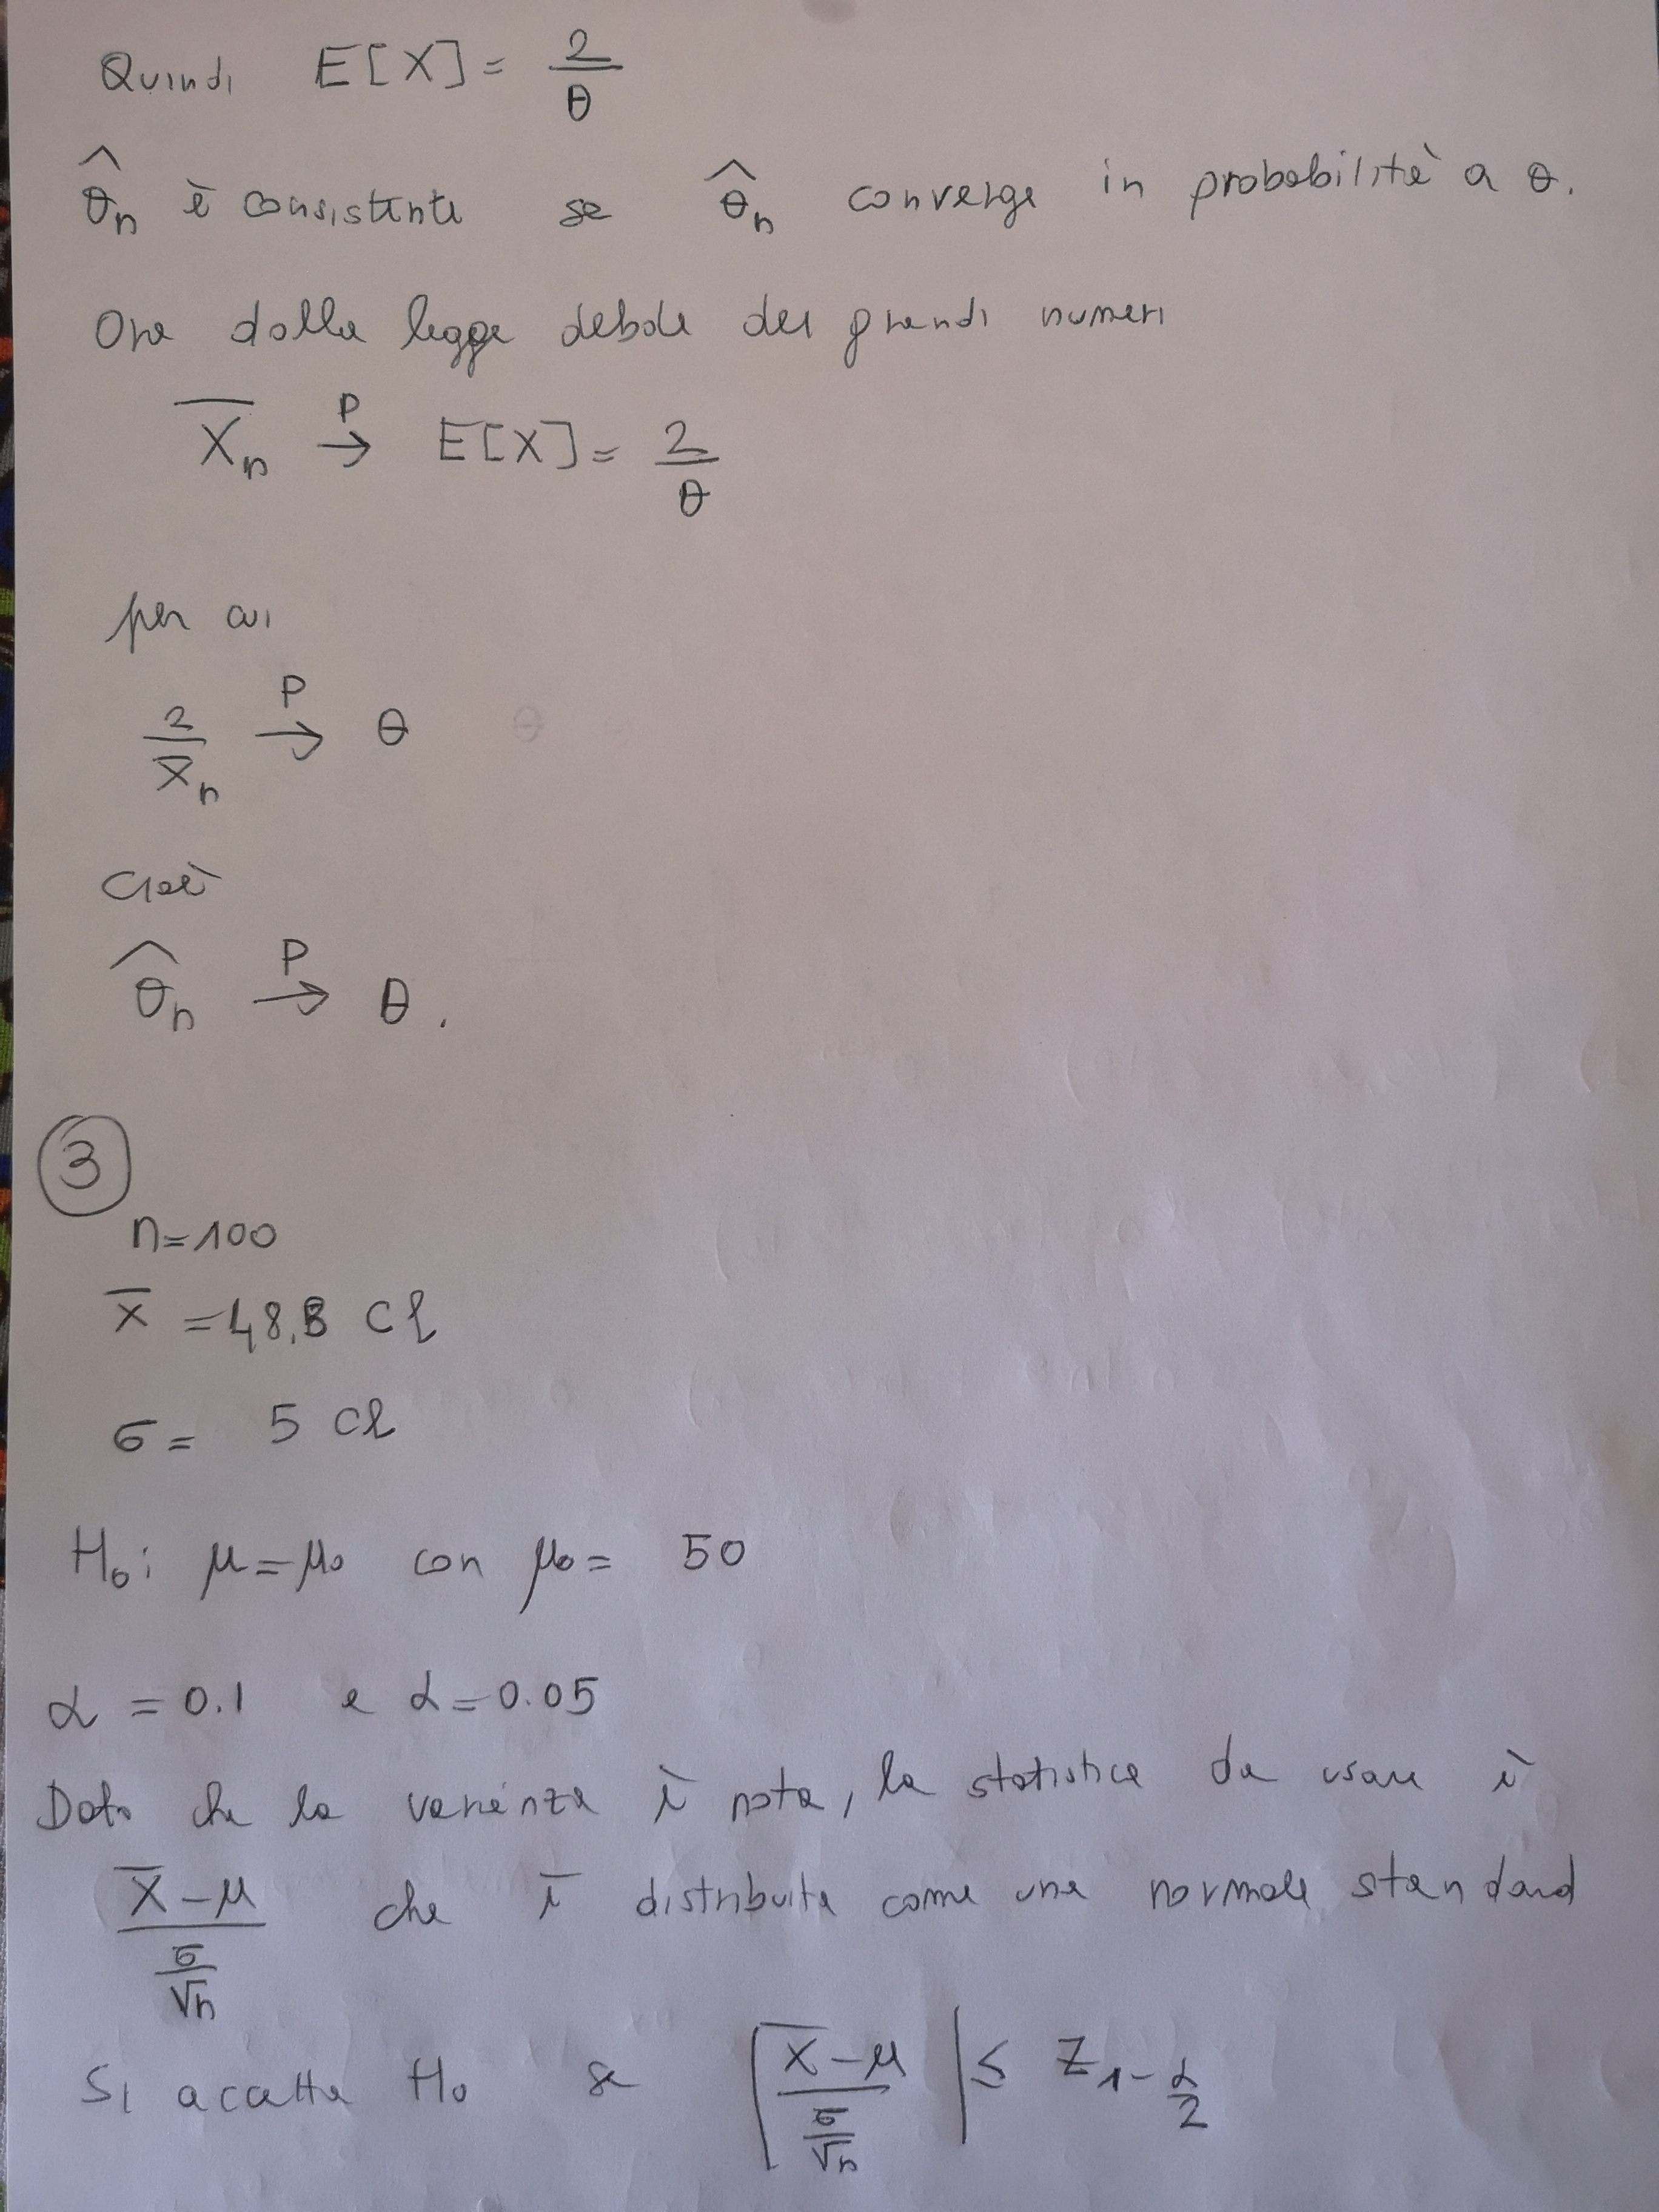 Quindi E[X] = 2/θ
θ̂n è consistente se θ̂n converge in probabilità a θ.
Ora dalla legge debole dei grandi numeri
X̄n →P E[X] = 2/θ
per cui
2/X̄n →P θ
cioè
θ̂n →P θ.
3
n=100
x̄ = 48.8 cl
σ = 5 cl
H0: μ=μ0 con μ0= 50
α = 0.1 e α=0.05
Dato che la varianza è nota, la statistica da usare è
(X̄-μ)/(σ/√n) che è distribuita come una normale standard
Si accetta H0 se |(X̄-μ)/(σ/√n)| ≤ z1-α/2